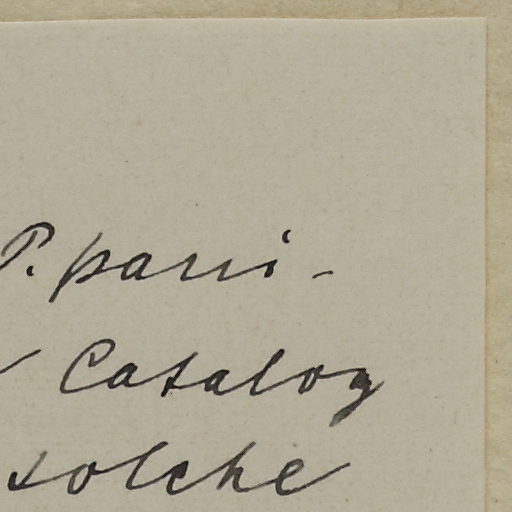 P. parri-
Catalog
solche